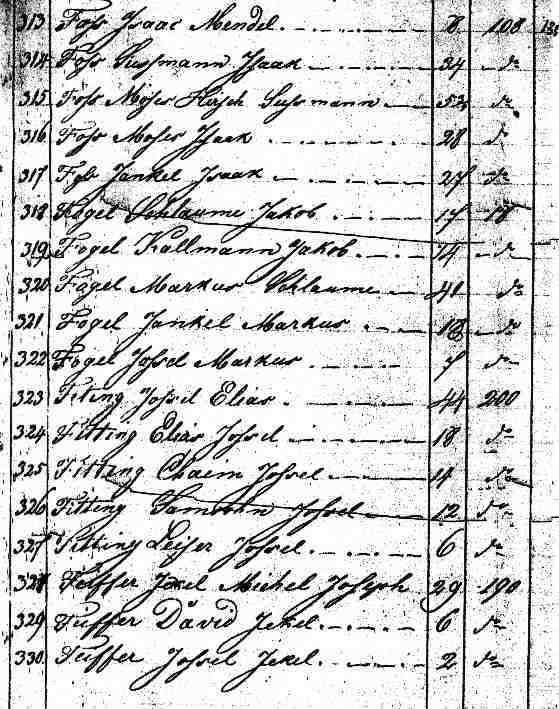 313 Foss Isaac Mendel 8 108
314 Foss Sussmann Isaak 34 do
315 Foss Moses Hirsch Sussmann 52 do
316 Foss Moses Isaak 28 do
317 Foss Jankel Isaak 27 do
318 Fogel Schlaume Jakob 17 18
319 Fogel Kallmann Jakob 14 do
320 Fogel Markus Schlaume 41 do
321 Fogel Jankel Markus 18 do
322 Fogel Jossel Markus 7 do
323 Fiting Jossel Elias 44 200
324 Fitting Elias Jossel 18 do
325 Fitting Chaim Jossel 14 do
326 Fitting Jossel 12 do
327 Fitting Leiser Jossel 6 do
328 Feiffer Jekel Michel Joseph 29 190
329 Feiffer David Jekel 6 do
330 Feiffer Jossel Jekel 2 do